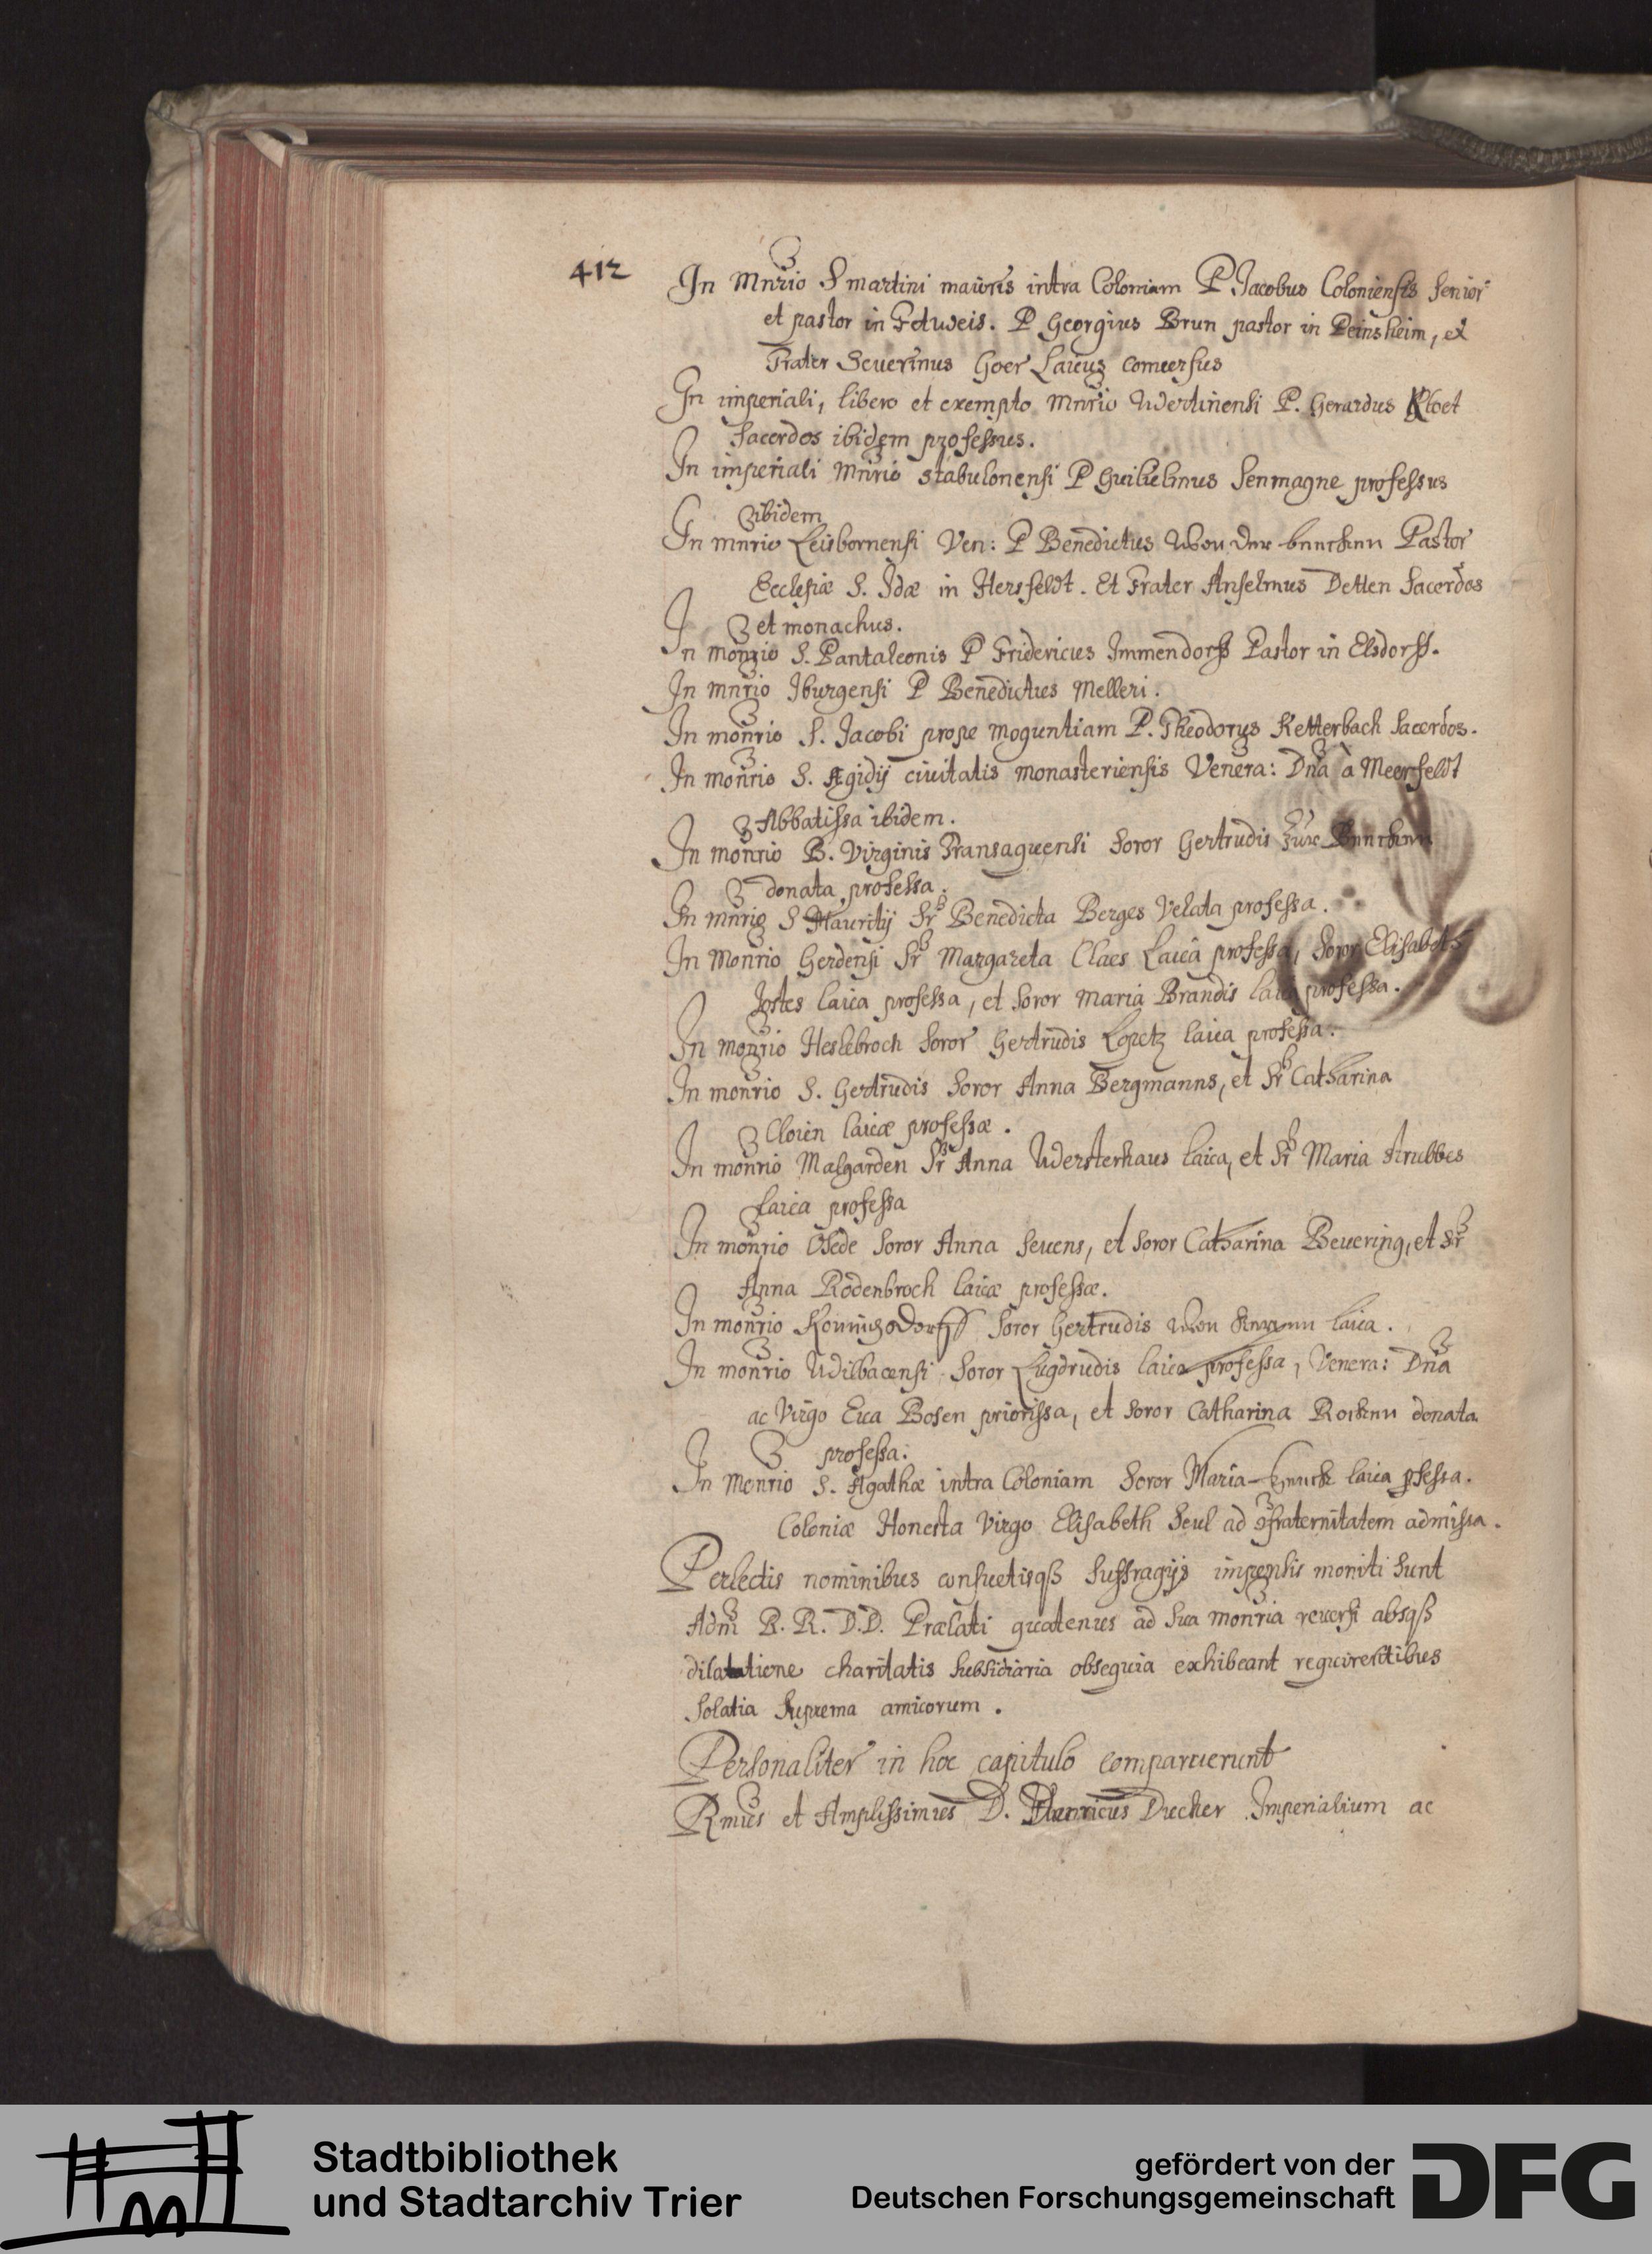 412
In Mnrio S martini maioris intra Coloniam P. Jacobus Coloniensis Senior
et pastor in P. Georgius Brun pastor in Peinsheim, et
Frater Severinus Goer Laicus conversus
In imperiali, libero et exempto Mnrio Werdinensi P. Gerardus Kloet
Sacerdos ibidem professus.
In imperiali Mnrio stabulonensi P Guilielmus Senmagne professus
ibidem
In mnrio Leisbornensi Ven: P Benedictus von der Pastor
Ecclesiæ S. Idæ in Hersfeldt. Et Frater Anselmus Detten Sacerdos
et monachus.
In monrio S. Pantaleonis P Fridericus Immendorff Pastor in Elsdorff.
In mnrio Iburgensi P Benedictus Melleri.
In monrio S. Jacobi prope moguntiam P. Theodorus Ketterbach Sacerdos.
In monrio S. Ægidij civitatis monasteriensis Venera: Dna à Meerfeldt
Abbatissa ibidem.
In monrio B. Virginis Transaquensi Soror Gertrudis zur
donata professa.
In mnrio S Mauritij Sr Benedicta Berges Velata professa.
In Monrio Gerdensi Sr Margareta Claes Laica professa, Soror Elisabeth
Jostes laica professa, et Soror Maria Brandis laica professa.
In monrio Heslebroch Soror Gertrudis Lopetz laica professa.
In monrio S. Gertrudis Soror Anna Bergmanns, et Sr Catharina
Cloien laicæ professæ.
In monrio Malgarden Sr Anna Westerhaus laica, et Sr Maria Strubbes
laica professa
In monrio Osede Soror Anna Sevens, et Soror Catharina Bevering, et Sr
Anna Rodenbroch laicæ professæ.
In monrio Konnigsdorff Soror Gertrudis von laica.
In monrio Wilbacensi Soror Lugdrudis laica professa, Venera: Dna
ac Virgo Eva Bosen priorissa, et Soror Catharina donata
professa.
In Monrio S. Agathæ intra Coloniam Soror Maria laica pfessa.
Coloniæ Honesta Virgo Elisabeth Seul ad ɔfraternitatem admissa.
Perlectis nominibus consuetisqß suffragijs impensis moniti sunt
Adm R. R. D.D. Prælati quatenus ad sua monria reversi absqß
dilatatione charitatis subsidiaria obsequia exhibeant requirentibus
solatia suprema amicorum.
Personaliter in hoc capitulo comparuerunt
Rmus et Amplissimus D. Henricus Ducker Imperialium ac
Stadtbibliothek
und Stadtarchiv Trier
gefördert von der
Deutschen Forschungsgemeinschaft
DFG